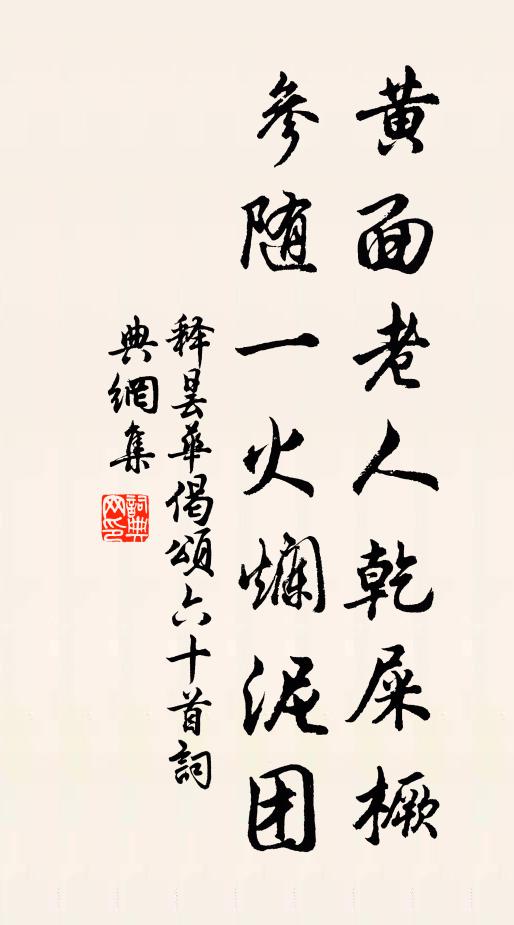 黄面老人乾屎橛
參随一火爛泥团
释曇華偈頌六十首詞
典網集
詞典網印